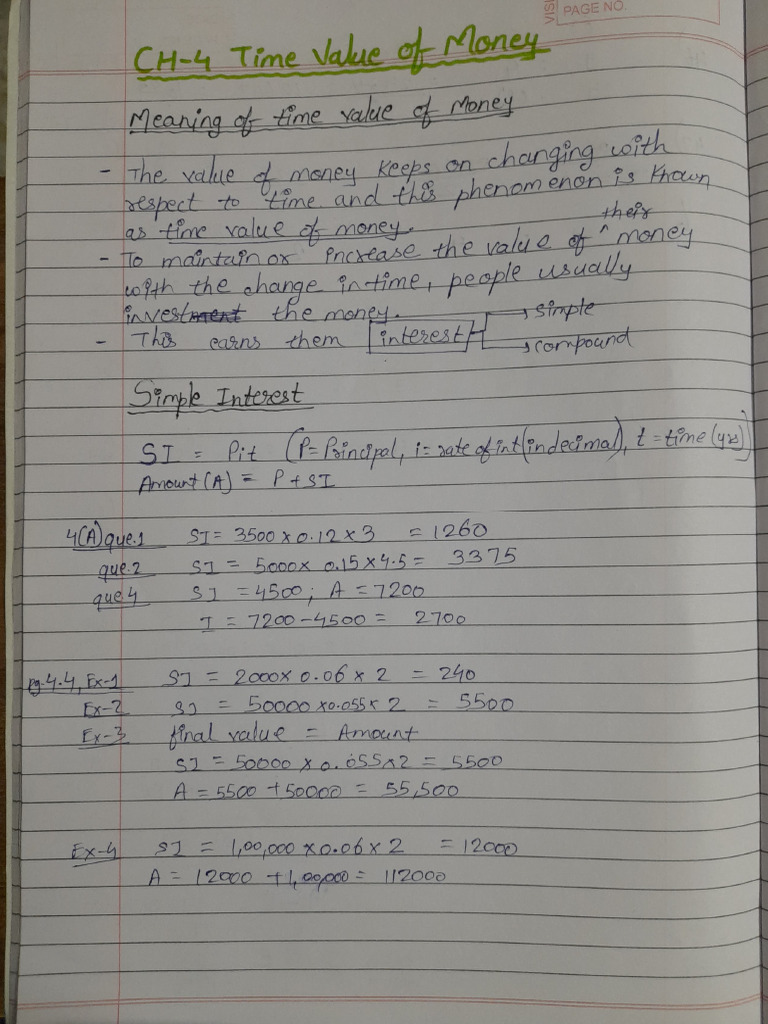 VISI
PAGE NO.
CH-4 Time Value of Money
Meaning of time value of Money
- The value of money keeps on changing with
respect to time and this phenomenon is known
as time value of money.
their
- To maintain or increase the value of ^ money
with the change in time, people usually
investment the money.
- This earns them interest → simple
→ compound
Simple Interest
SI = Pit (P= Principal, i= rate of int(in decimal), t = time (yrs)
Amount (A) = P + SI
4(A) que.1 SI= 3500 x 0.12 x 3 = 1260
que.2 SI = 5000x 0.15 x 4.5 = 3375
que 4 SI = 4500; A = 7200
I = 7200 - 4500 = 2700
pg. 4.4, Ex-1 SI = 2000x 0.06 x 2 = 240
Ex-2 SI = 50000 x0.055x 2 = 5500
Ex-3 final value = Amount
SI = 50000 x 0.055x2 = 5500
A = 5500 + 50000 = 55,500
Ex-4 SI = 1,00,000 x0.06 x 2 = 12000
A = 12000 +1,00,000= 112000